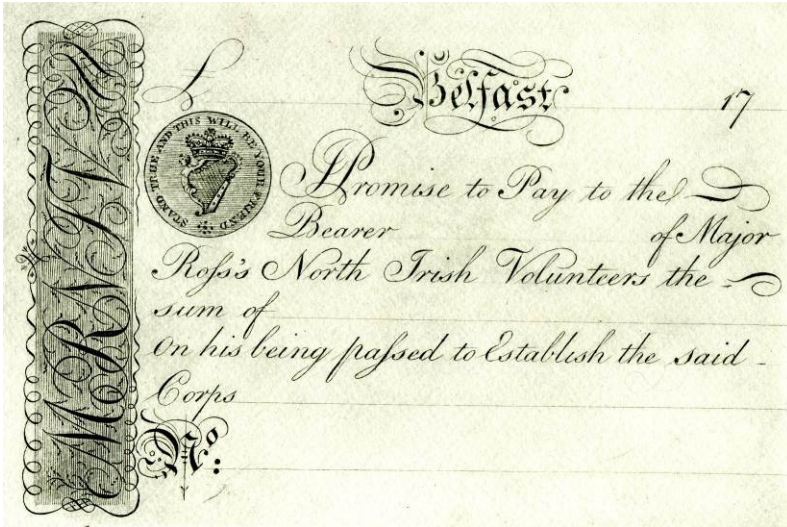 £
Belfast 17
STAND TRUE AND THIS WILL BE YOUR FRIEND
I Promise to Pay to the
Bearer of Major
Roſs's North Irish Volunteers the
sum of
On his being paſsed to Establish the said
Corps
No:
MRNIV